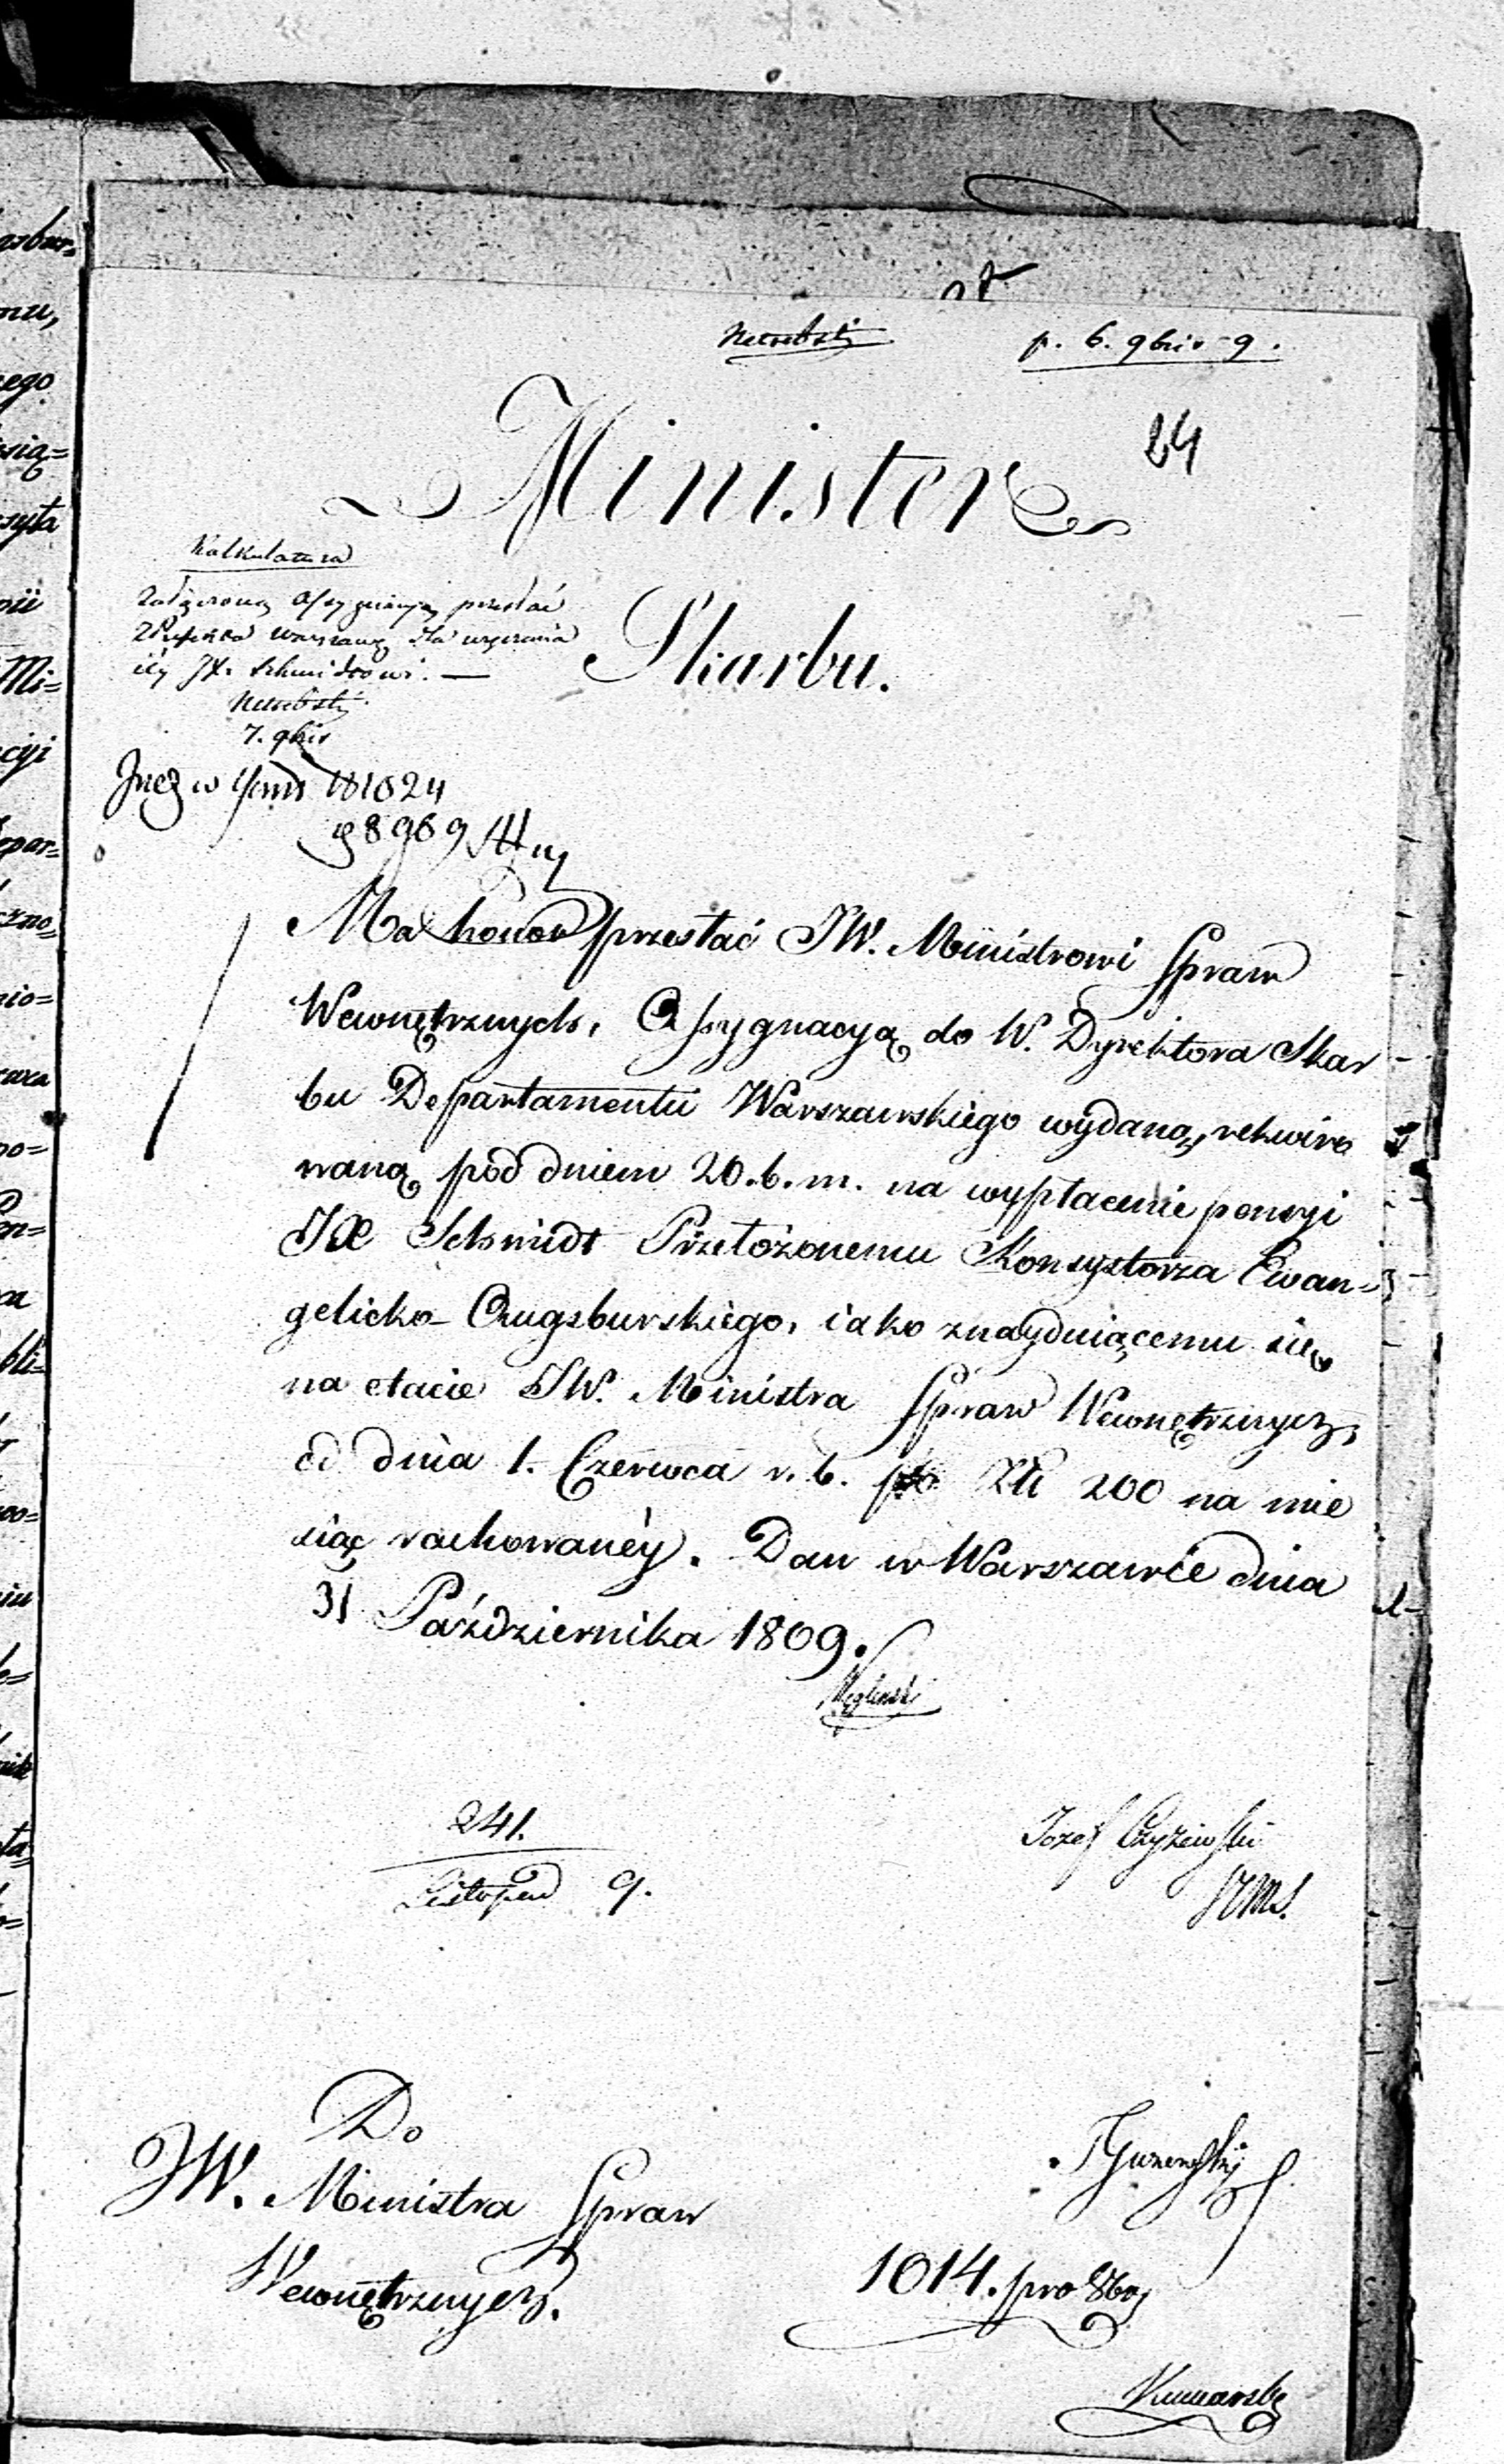 p. 6. 9bris 9.
24
Minister
Skarbu.
Kalkulatura
Załączoną Assygnacyą przesłać
dla wręczenia
iéy JX. Schmidtowi. —
7. 9bris
Ma honor przesłać JW. Ministrowi Spraw
Wewnętrznych, Assygnacyą do W. Dyrektora Skar
bu Departamentu Warszawskiego wydaną, rekwiro
waną pod dniem 20. b. m. na wypłacenie pensyi
JX Schmidt Przełożonemu Konsystorza Ewan-
gelicko-Augsburskiego, iako znayduiącemu się
na etacie JW. Ministra Spraw Wewnętrznych,
od dnia 1. Czerwca r. b. po Złł 200 na mie
siąc rachowanéy. Dan w Warszawie dnia
31 Października 1809.
Węgliński
241.
Listopad 9.
Jozef Czyżewski
Do
JW. Ministra Spraw
Wewnętrznych.
1014. pro 8bri